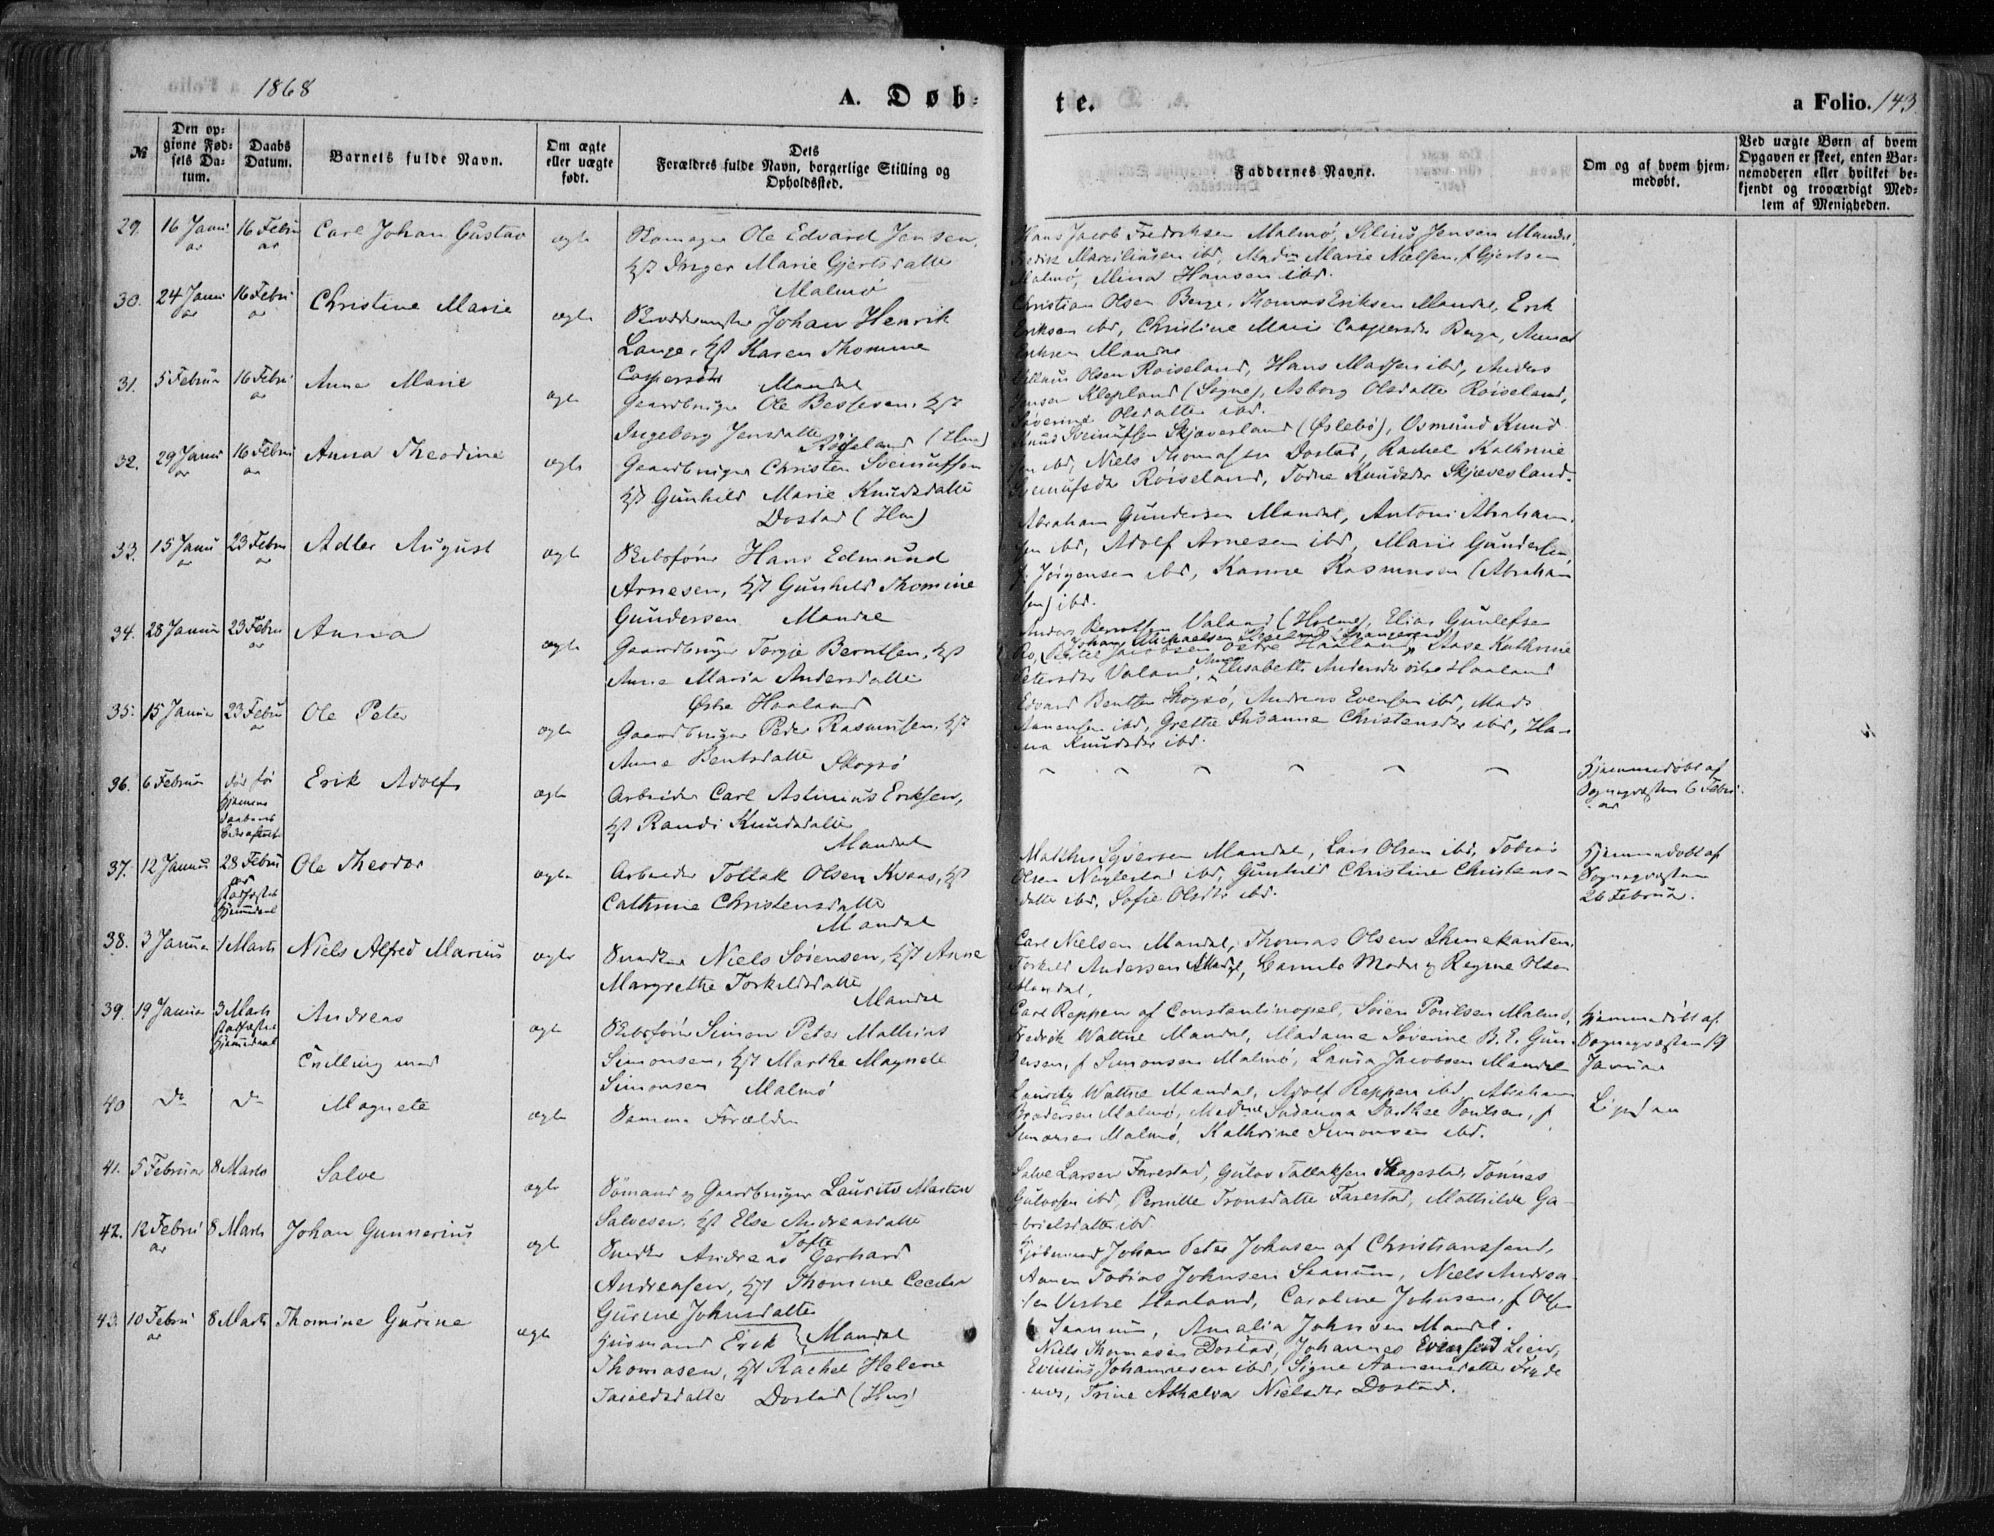 1868
A. Døb-
te.
a Folio. 143
№
Den op-
givne Fød-
sels Da-
tum.
Daabs
Datum.
Barnets fulde Navn.
Om ægte
eller uægte
født.
Dets
Forældres fulde Navn, borgerlige Stilling og
Opholdssted.
Faddernes Navne.
Om og af hvem hjem-
medøbt.
Ved uægte Børn af hvem
Opgaven er skeet, enten Bar-
nemoderen eller hvilket be-
kjendt og troværdigt Med-
lem af Menigheden.
29. 16 Janu 16 Febru Carl Johan Gustav ægte
ar ar
Ole Edvard Jensen,
Inger Marie Gjertsdatter
Malmø
Hans Jacob Fredriksen Malmø, Jensen Mandal,
ibd, Marie Nielsen, f Gjertsen
Malmø, Mina Hansen ibd.
30. 24 Janu 16 Febru Christine Marie ægte
ar ar
Johan Henrik
Lange, Karen Thomine
Caspersdtr Mandal
Christian Olsen Berge, Thomas Eriksen Mandal, Erik
Eriksen ibd, Christine Marie Caspersdtr Berge,
Eriksen Mandal
31. 5 Februar 16 Febru Anne Marie ægte
ar
Gaardbruger Ole Bessesen,
Ingeborg Jensdatter Røiseland (Hm)
Olsen Røiseland, Hans Madsen ibd, Anders
Jensen Klepland (Søgne), Asborg Olsdatter Røiseland,
Severine Olsdatter ibd.
32. 29 Janu 16 Febru Anna Theodine ægte
ar ar
Gaardbruger Christen Sveinufsen
Gunhild Marie Knudsdatter
Dostad (Hm)
Knud Sveinufsen Skjævesland (Øslebø), Osmund Knud
sen ibd, Niels Thomassen Dostad, Rachel Kathrine
Sveinufsdtr Røiseland, Todne Knudsdtr Skjævesland.
33. 15 Janu 23 Febru Adler August ægte
ar ar
Skibsfører Hans Edmund
Arnesen, Gunhild Thomine
Gundersen Mandal
Abraham Gundersen Mandal, Antoni Abraham
sen ibd, Adolf Arnesen ibd, Marie Gundersen
f. Jørgensen ibd, Kanne Rasmusen (Abraham
sen) ibd.
34. 28 Januar 23 Febru Anna ægte
ar
Gaardbruger Torgje Berntsen,
Anne Maria Andersdatter
Østre Haaland
Anders Berntsen Valand (Holme), Elias Gunlefsen
Ro, Jacobsen østre Haaland, Aase Kathrine
Petersdtr Valand, Anne Elisabeth Andersdtr østre Haaland
35. 15 Januar 23 Febru Ole Peter ægte
ar
Gaardbruger Peder Rasmusen,
Anne Bentsdatter Skogsø
Edvard Bentsen Skogsø, Andreas Evensen ibd, Mads
Aanensen ibd, Grethe Susanne Christensdtr ibd, Ha
na Knudsdtr ibd.
36. 6 Februar død før
hjemme
daabens
bekræftelse
Erik Adolf ægte
Arbeider Carl Eriksen,
Randi Knudsdatter
Mandal
Hjemmedøbt af
Sognepræsten 6 Febru-
ar
37. 12 Janu 28 Febru
ar
stadfæstet
hjemmedaab
Ole Theodor ægte
Arbeider Tollak Olsen Kvaas,
Cathrine Christensdatter
Mandal
Matthis Syversen Mandal, Lars Olsen ibd, Tobias
Olsen Neglestad ibd, Gunhild Christine Christens-
datter ibd, Sofie Olsdtr ibd.
Hjemmedøbt af
Sognepræsten
26 Februar.
38. 3 Januar 1 Marts Niels Alfred Marius ægte
Snedker Niels Sørensen, Anne
Margrethe Torkildsdatter
Mandal
Carl Nielsen Mandal, Thomas Olsen
Torkild Andersen Mandal, og Regine Olsen
Mandal.
39. 19 Januar 3 Marts
stadfæstet
hjemmedaab
Andreas
Tvilling med
ægte
Skibsfører Simon Peter Mathias
Simonsen, Marthe Magnete
Simonsen Malmø
Carl Reppen af Constantinopel, Søren Poulsen Malmø,
Fredrik Wattne Mandal, Madame Severine B. E. Gun
dersen, f Simonsen Malmø, Laura Jacobsen Mandal
Hjemmedøbt af
Sognepræsten 19
Januar
40 Do Do Magnete ægte
Samme Forældre
Lauritz Wattne Mandal, Adolf Reppen ibd, Abraham
Brødersen Malmø, Madme Susanna Dorthea Poulsen, f.
Simonsen Malmø, Kathrine Simonsen ibd.
Ligesaa
41. 5 Februar 8 Marts Salve ægte
Sømand og Gaardbruger Laurits Martin
Salvesen, Else Andreasdatter
Tofte
Salve Larsen Farestad, Gulov Tallaksen Skagestad, Tønnes
Gulovsen ibd, Pernille Tronsdatter Farestad, Mathilde Ga-
brielsdatter ibd
42. 12 Febru 8 Marts Johan Gunnerius ægte
ar
Snedker Andreas Gerhard
Andreasen, Thomine Cecilie
Gurine Johnsdatter
Mandal
Kjøbmand Johan Peter Johnsen af Christianssand,
Aanen Tobias Johnsen Saanum, Niels Andrea-
sen Vestre Haaland, Caroline Johnsen, f Olsen
Saanum, Amalia Johnsen Mandal.
43. 10 Febru 8 Marts Thomine Gurine ægte
ar
Husmand Erik
Thomasen, Rachel Helene
Taraldsdatter Dostad (Hm)
Niels Thomasen Dostad, Johannes Evensen Lien,
Johannesen ibd, Signe Aanensdatter
Trine Nielsdtr Dostad.